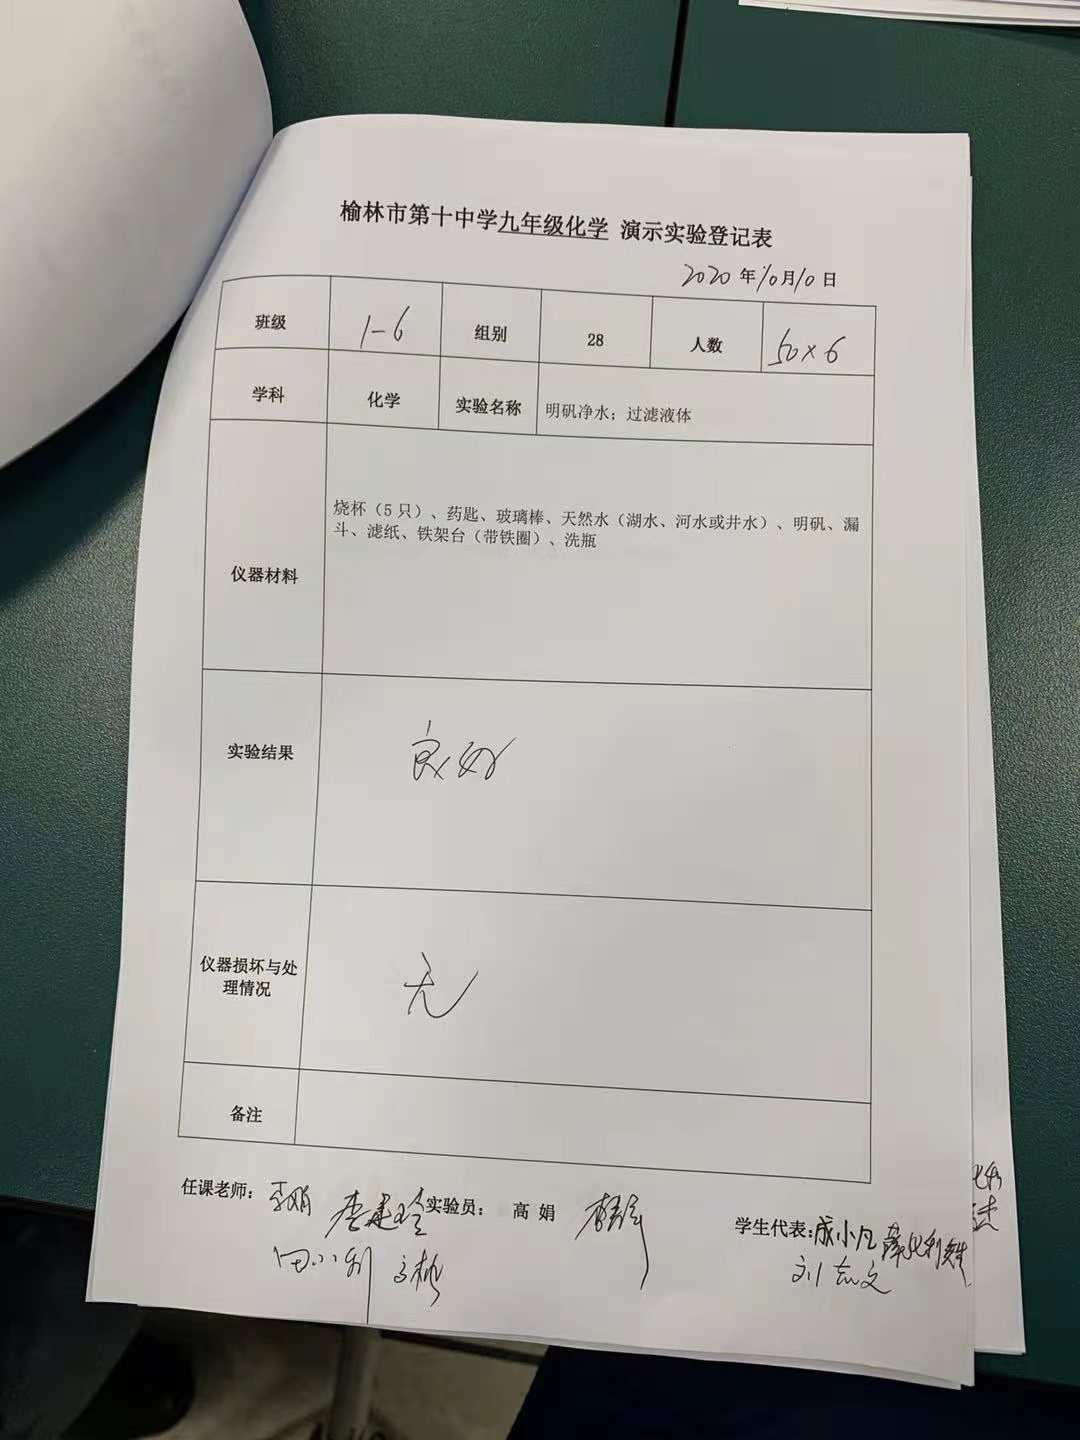 榆林市第十中学九年级化学 演示实验登记表
2020年10月10日
班级 1-6 组别 28 人数 50×6
学科 化学 实验名称 明矾净水；过滤液体
仪器材料
烧杯（5只）、药匙、玻璃棒、天然水（湖水、河水或井水）、明矾、漏
斗、滤纸、铁架台（带铁圈）、洗瓶
实验结果 良好
仪器损坏与处
理情况
无
备注
任课老师： 李娟 实验员： 高娟 学生代表：成小凡
刘志文